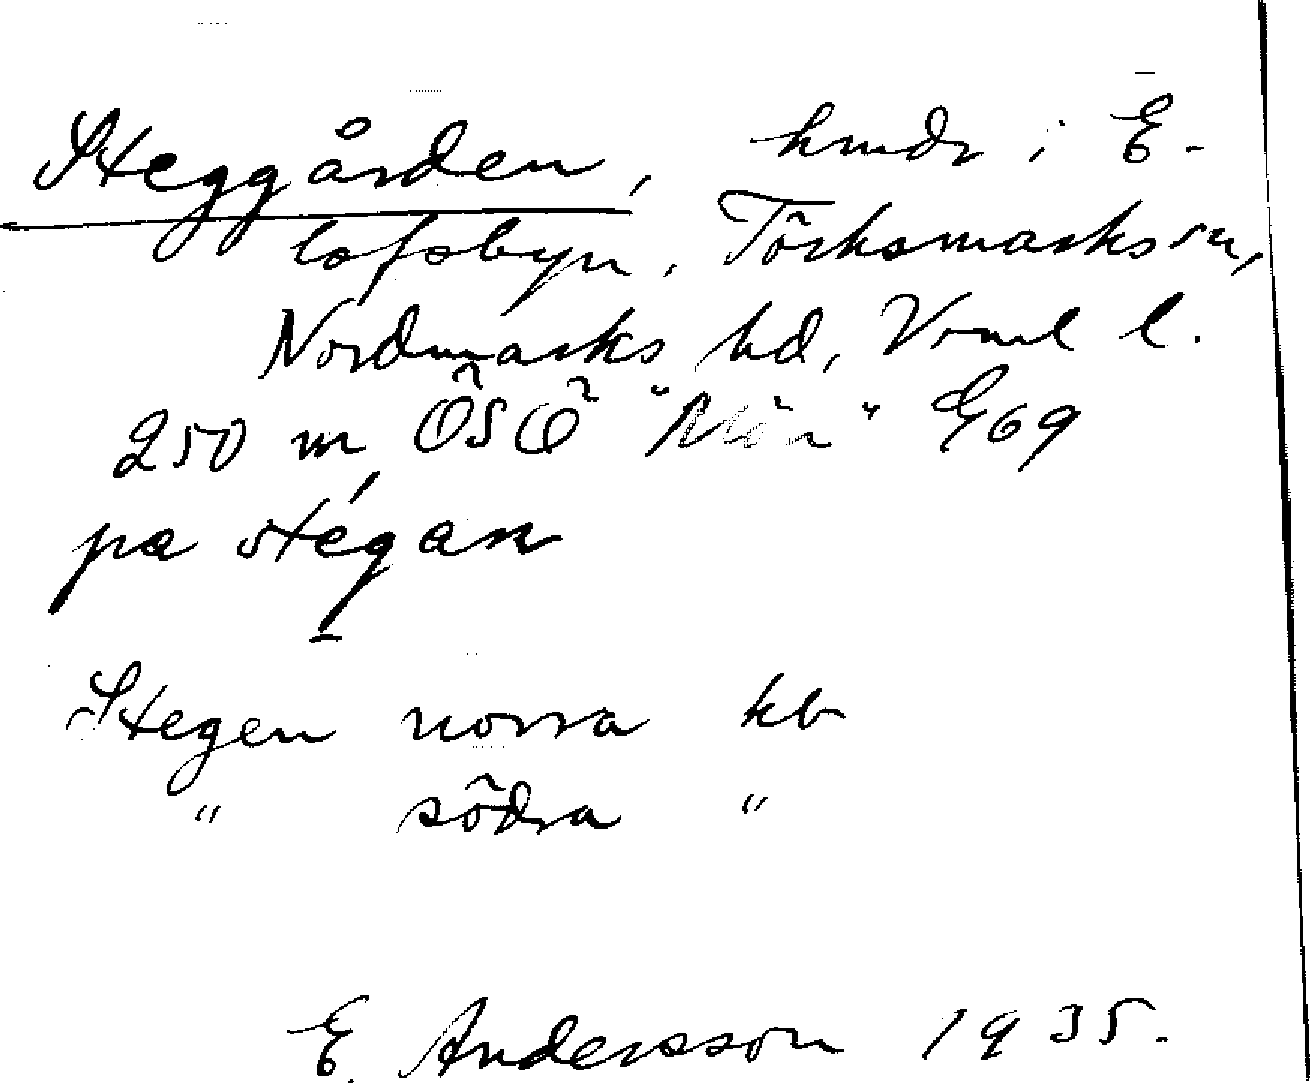 Steggården, hmdr i E-
lofsbyn, Töcksmarks sn,
Nordmarks hd, Vrml l.
250 m ÖSÖ " " G69
pa stégan
Stegen norra kb
" södra "
E. Andersson 1935.